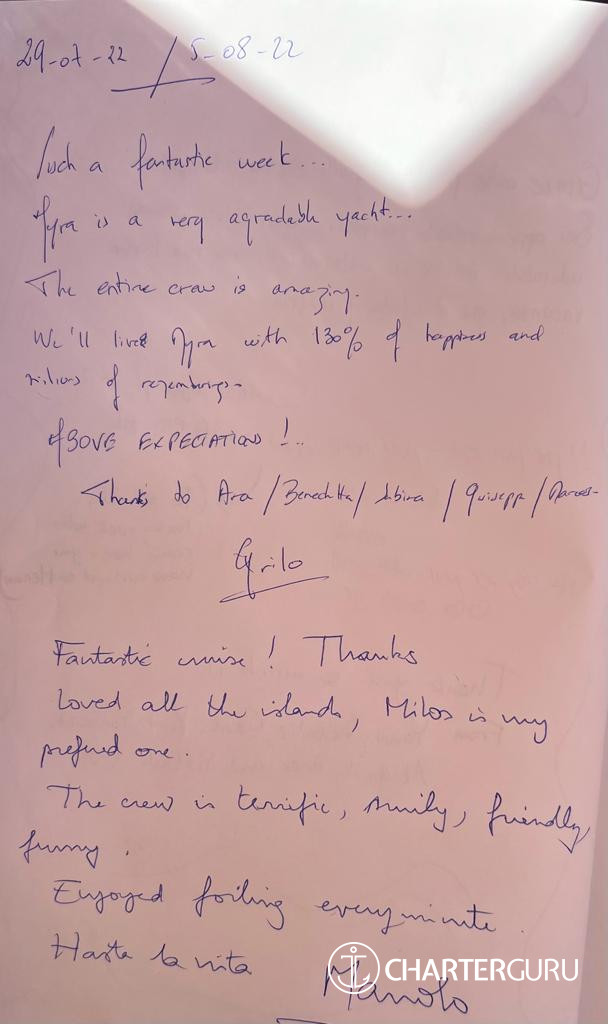 29-07-22 / 5-08-22
Such a fantastic week...
Myra is a very agradable yacht...
The entire crew is amazing.
We'll lived Myra with 130% of happiness and
of
ABOVE EXPECTATIONS !..
Thanks to Ana / Benedetta / / /
Fantastic cruise ! Thanks
Loved all the islands, Milos is my
prefered one.
The crew is terrific, smily, friendly,
funny.
Enjoyed foiling every minute.
Hasta la vita
Manolo
CHARTERGURU